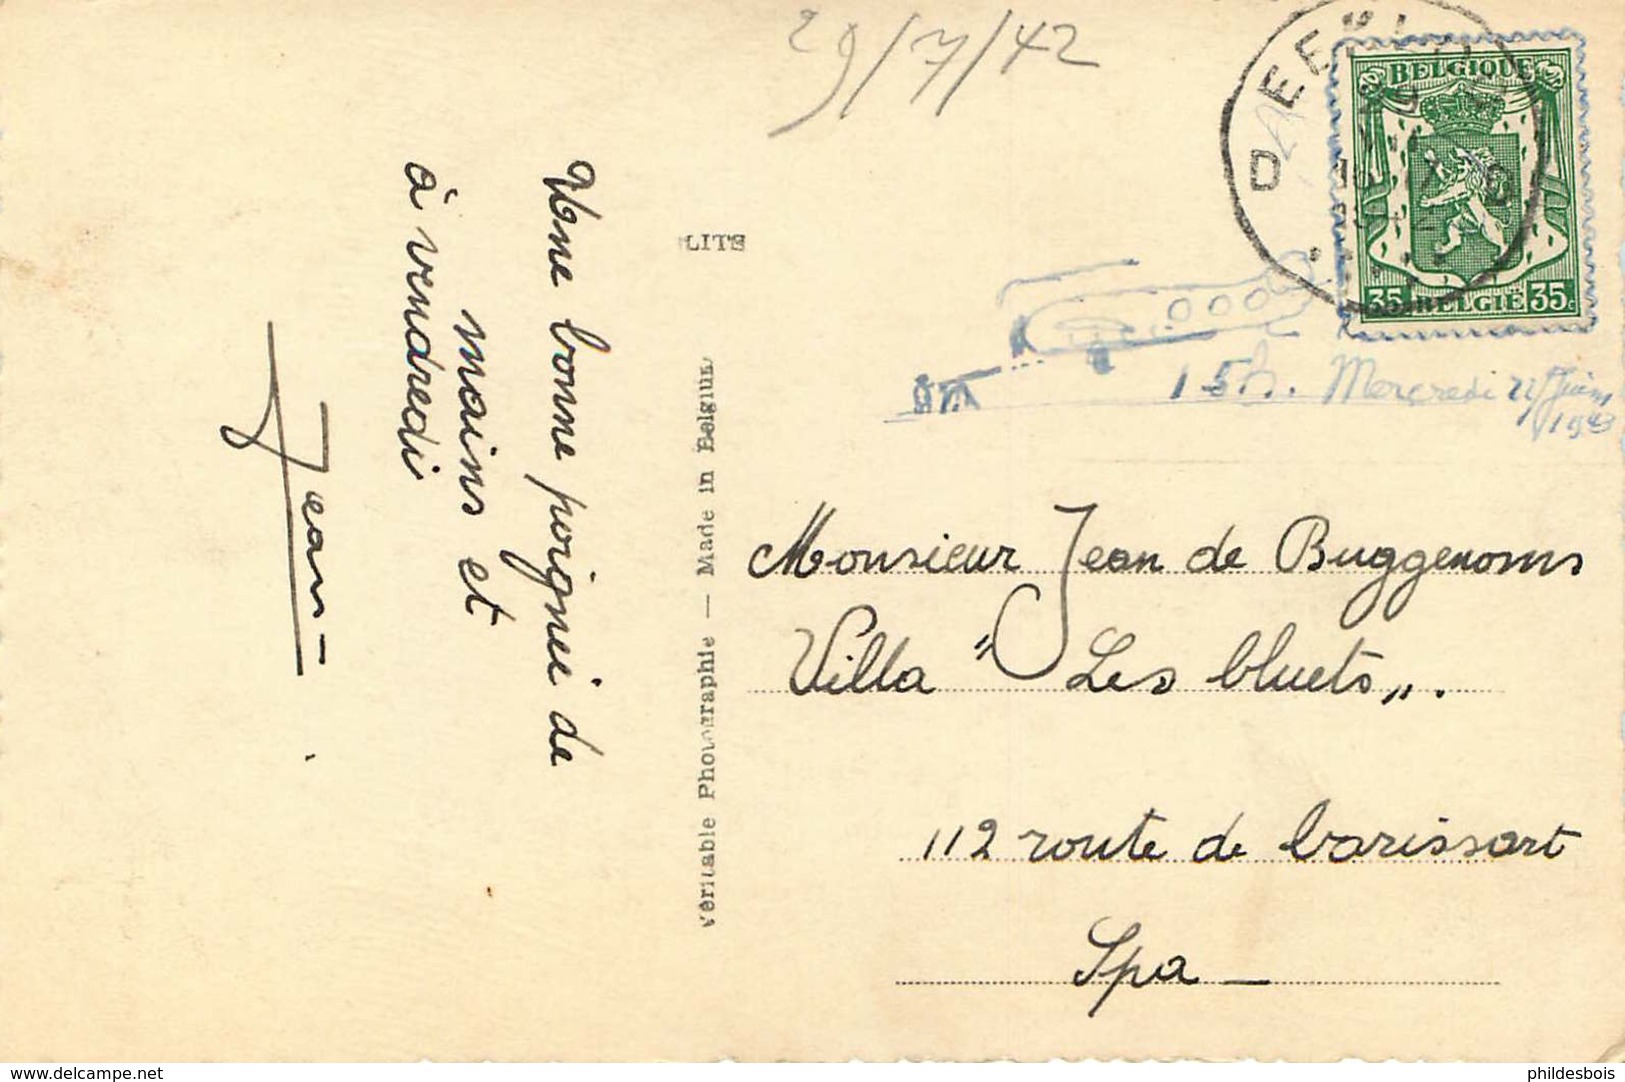 29/7/42
Une bonne poignée de
mains et
à vendredi
Jean
LITE
Véritable Photographie — Made in Belgium
BELGIQUE
35 BELGIË 35c
15h. Mercredi
1943
Monsieur Jean de Buggenoms
Villa "Les bluets".
112 route de barissart
Spa
www.delcampe.net
phildesbois